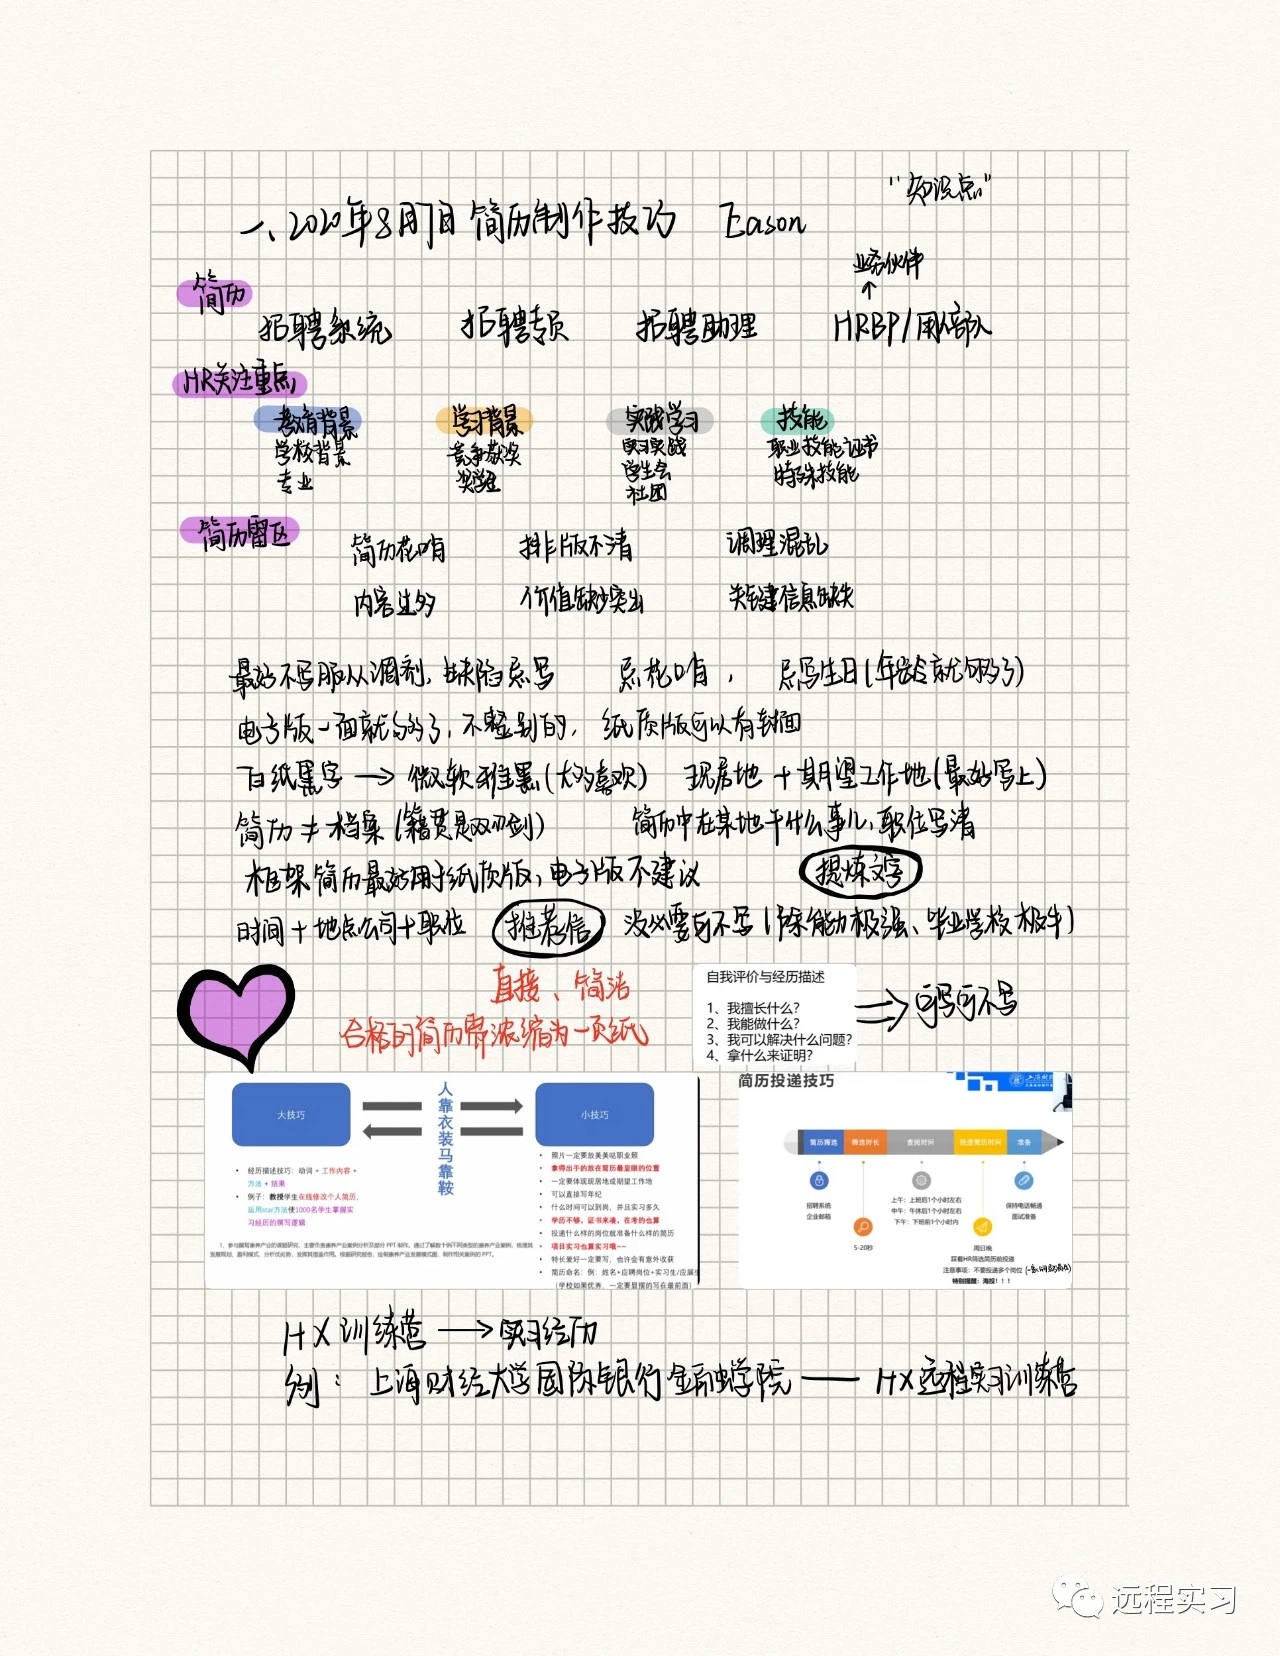 “知识点”
一、2020年8月7日 简历制作技巧 Eason
业务伙伴
简历
招聘系统 招聘专员 招聘助理 HRBP/用人部队
HR关注重点
教育背景 学习背景 实践学习 技能
学校背景 竞争获奖 实习实践 职业技能证书
专业 奖学金 学生会 特殊技能
社团
简历雷区
简历花哨 排版不清 调理混乱
内容过多 价值缺少突出 关键信息缺失
最好不写服从调剂,缺陷忌写 忌花哨, 忌写生日(年龄就够了)
电子版一面就够了,不整别的,纸质版可以有封面
白纸黑字 → 微软雅黑(大多喜欢) 现居地+期望工作地(最好写上)
简历≠档案(籍贯是双刃剑) 简历中在某地干什么事儿,职位写清
框架简历最好用于纸质版,电子版不建议 提炼文字
时间+地点公司+职位 推荐信 没必要可不写(除能力极强、毕业学校极牛)
直接、简洁
合格的简历需浓缩为一页纸
自我评价与经历描述
1、我擅长什么?
2、我能做什么?
3、我可以解决什么问题?
4、拿什么来证明?
可写可不写
大技巧
人靠衣装马靠鞍
小技巧
• 经历描述技巧:动词 + 工作内容 +
方法 + 结果
• 例子:教授学生在线修改个人简历,
运用star方法使1000名学生掌握实
习经历的撰写逻辑
• 照片一定要放美美哒职业照
• 拿得出手的放在简历最显眼的位置
• 一定要体现现居地或期望工作地
• 可以直接写年纪
• 什么时间可以到岗,并且实习多久
• 学历不够,证书来凑,在考的也算
• 投递什么样的岗位就准备什么样的简历
• 项目实习也算实习哦~~
• 特长爱好一定要写,也许会有意外收获
• 简历命名:例:姓名+应聘岗位+实习生/应届生
(学校如果优秀,一定要显摆的写在最前面)
简历投递技巧
简历筛选 筛选时长 查阅时间 投递简历时间 准备
招聘系统
企业邮箱
5-20秒
上午:上班后1个小时左右
中午:午休后1个小时左右
下午:下班前1个小时内
周日晚
踩着HR筛选简历前投递
注意事项:不要投递多个岗位
特别提醒:海投!!!
保持电话畅通
面试准备
HX训练营 → 实习经历
例:上海财经大学国际银行金融学院 —— HX远程实习训练营
远程实习